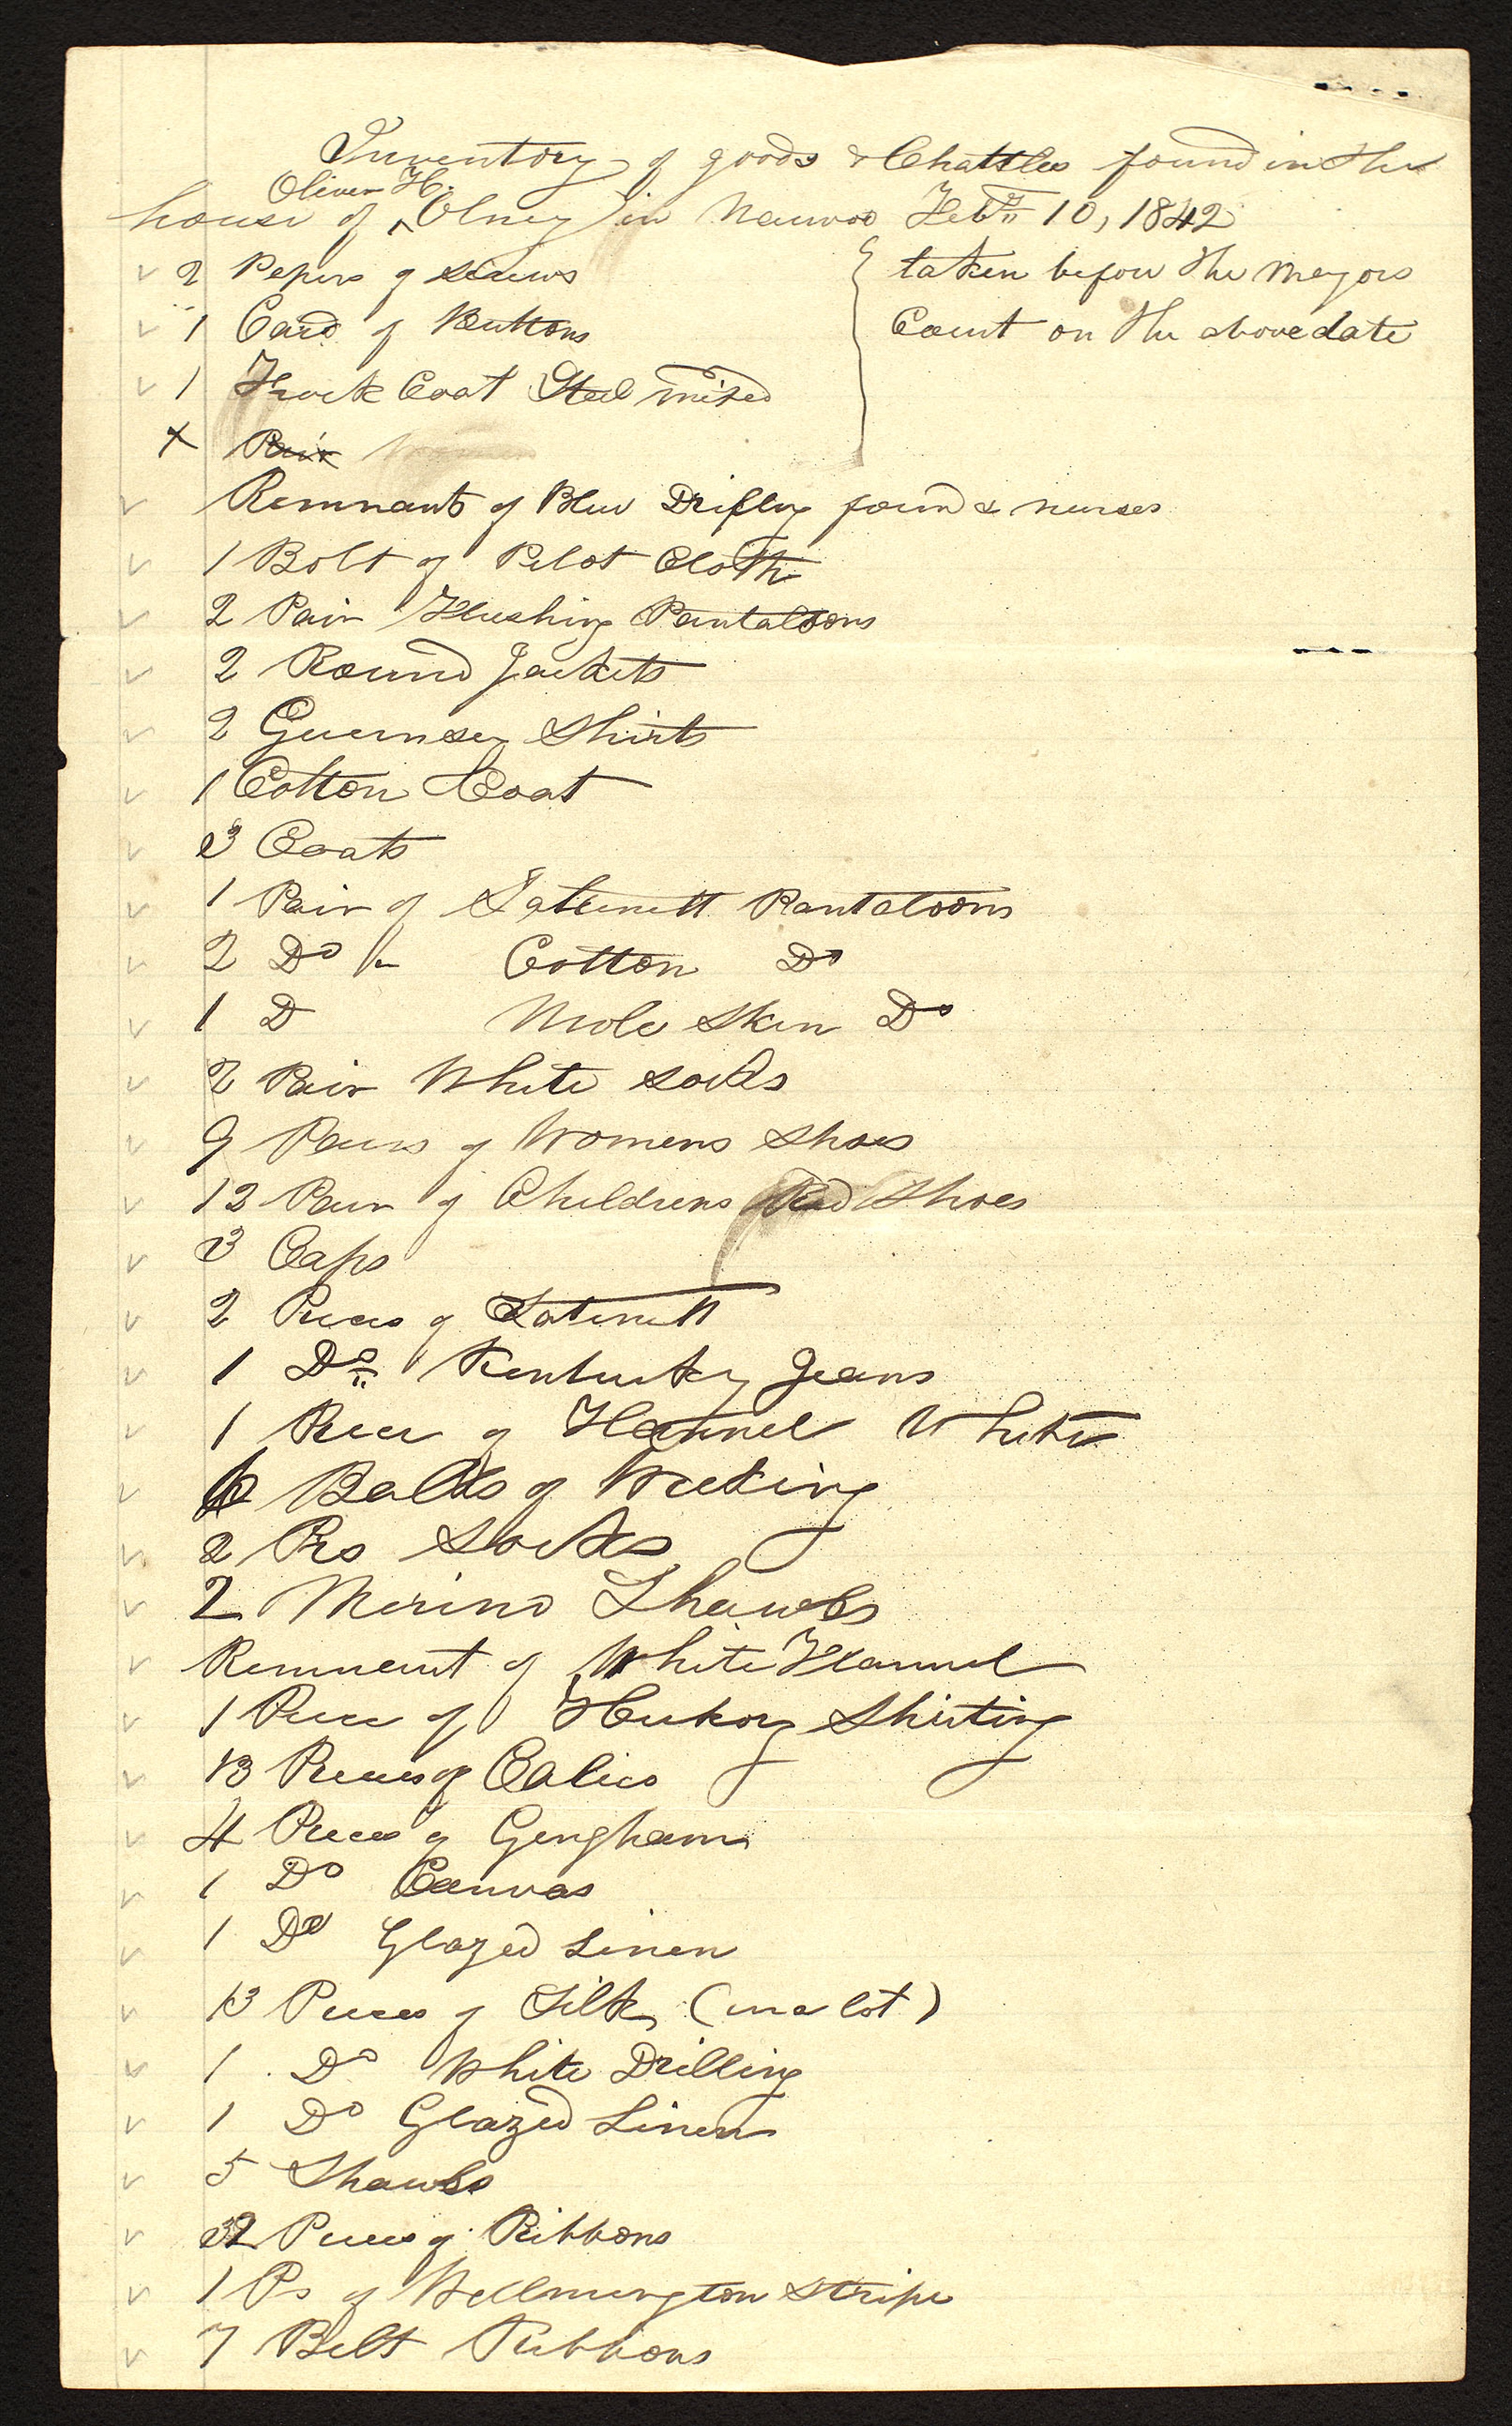 Inventory of goods & Chattles found in the
Oliver H.
house of ^ Olney in Nauvoo Feby 10, 1842
✓ 2 Papers of screws { taken before the Mayors
✓ 1 Card of Buttons Court on the above date
✓ 1 Frock Coat Steel mixed
x Pair
✓ Remnants of Blue found &
✓ 1 Bolt of Pilot Cloth
✓ 2 Pair Flushing Pantaloons
✓ 2 Round Jackets
✓ 2 Guernsey Shirts
✓ 1 Cotton Coat
✓ 3 Coats
✓ 1 Pair of Satinett Pantaloons
✓ 2 Do Cotton Do
✓ 1 D Mole Skin Do
✓ 2 Pair White socks
✓ 9 Pairs of Womens Shoes
✓ 12 Pair of Childrens Shoes
✓ 3 Caps
✓ 2 Pieces of Satinett
✓ 1 Do Kentucky Jeans
✓ 1 Piece of Flannel White
✓ Balls of Wicking
✓ 2 Prs Socks
✓ 2 Merino Shawls
✓ Remnant of White Flannel
✓ 1 Piece of Hickory Shirting
✓ 13 Pieces of Calico
✓ 4 Pieces of Gingham
✓ 1 Do Canvas
✓ 1 Do Glazed Linen
✓ 13 Pieces of Silk (in a lot)
✓ 1 Do White Drilling
✓ 1 Do Glazed Linen
✓ 5 Shawls
✓ 32 Pieces of Ribbons
✓ 1 Ps of Wellmington Stripe
✓ 7 Belt Ribbons